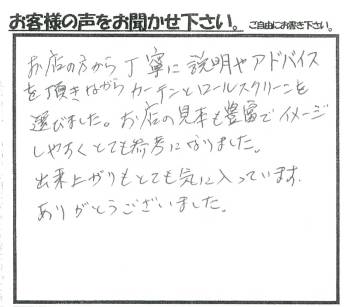 お客様の声をお聞かせ下さい。 ご自由にお書き下さい。
お店の方から丁寧に説明やアドバイス
を頂きながらカーテンとロールスクリーンを
選びました。お店の見本も豊富でイメージ
しやすくとても参考になりました。
出来上がりもとても気に入っています。
ありがとうございました。